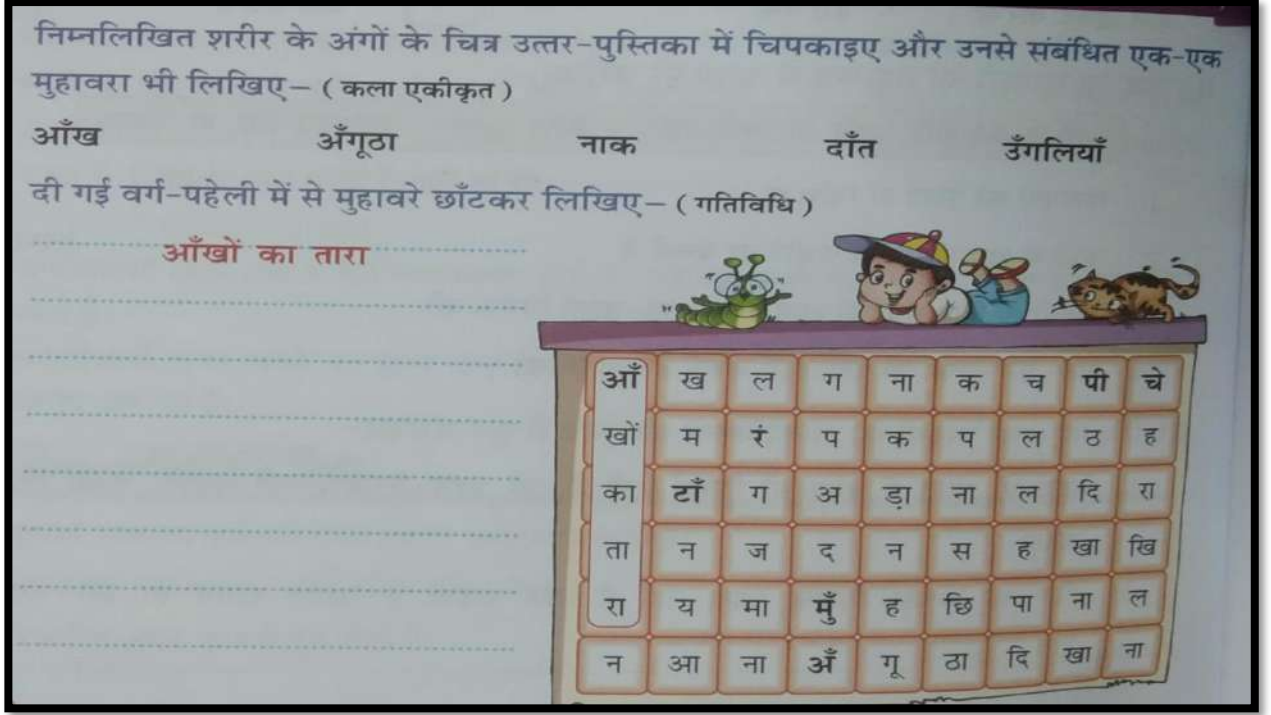 निम्नलिखित शरीर के अंगों के चित्र उत्तर-पुस्तिका में चिपकाइए और उनसे संबंधित एक-एक
मुहावरा भी लिखिए— ( कला एकीकृत )
आँख अँगूठा नाक दाँत उँगलियाँ
दी गई वर्ग-पहेली में से मुहावरे छाँटकर लिखिए— ( गतिविधि )
आँखों का तारा
आँ ख ल ग ना क च पी चे
खों म रं प क प ल ठ ह
का टाँ ग अ ड़ा ना ल दि रा
ता न ज द न स ह खा खि
रा य मा मुँ ह छि पा ना ल
न आ ना अँ गू ठा दि खा ना